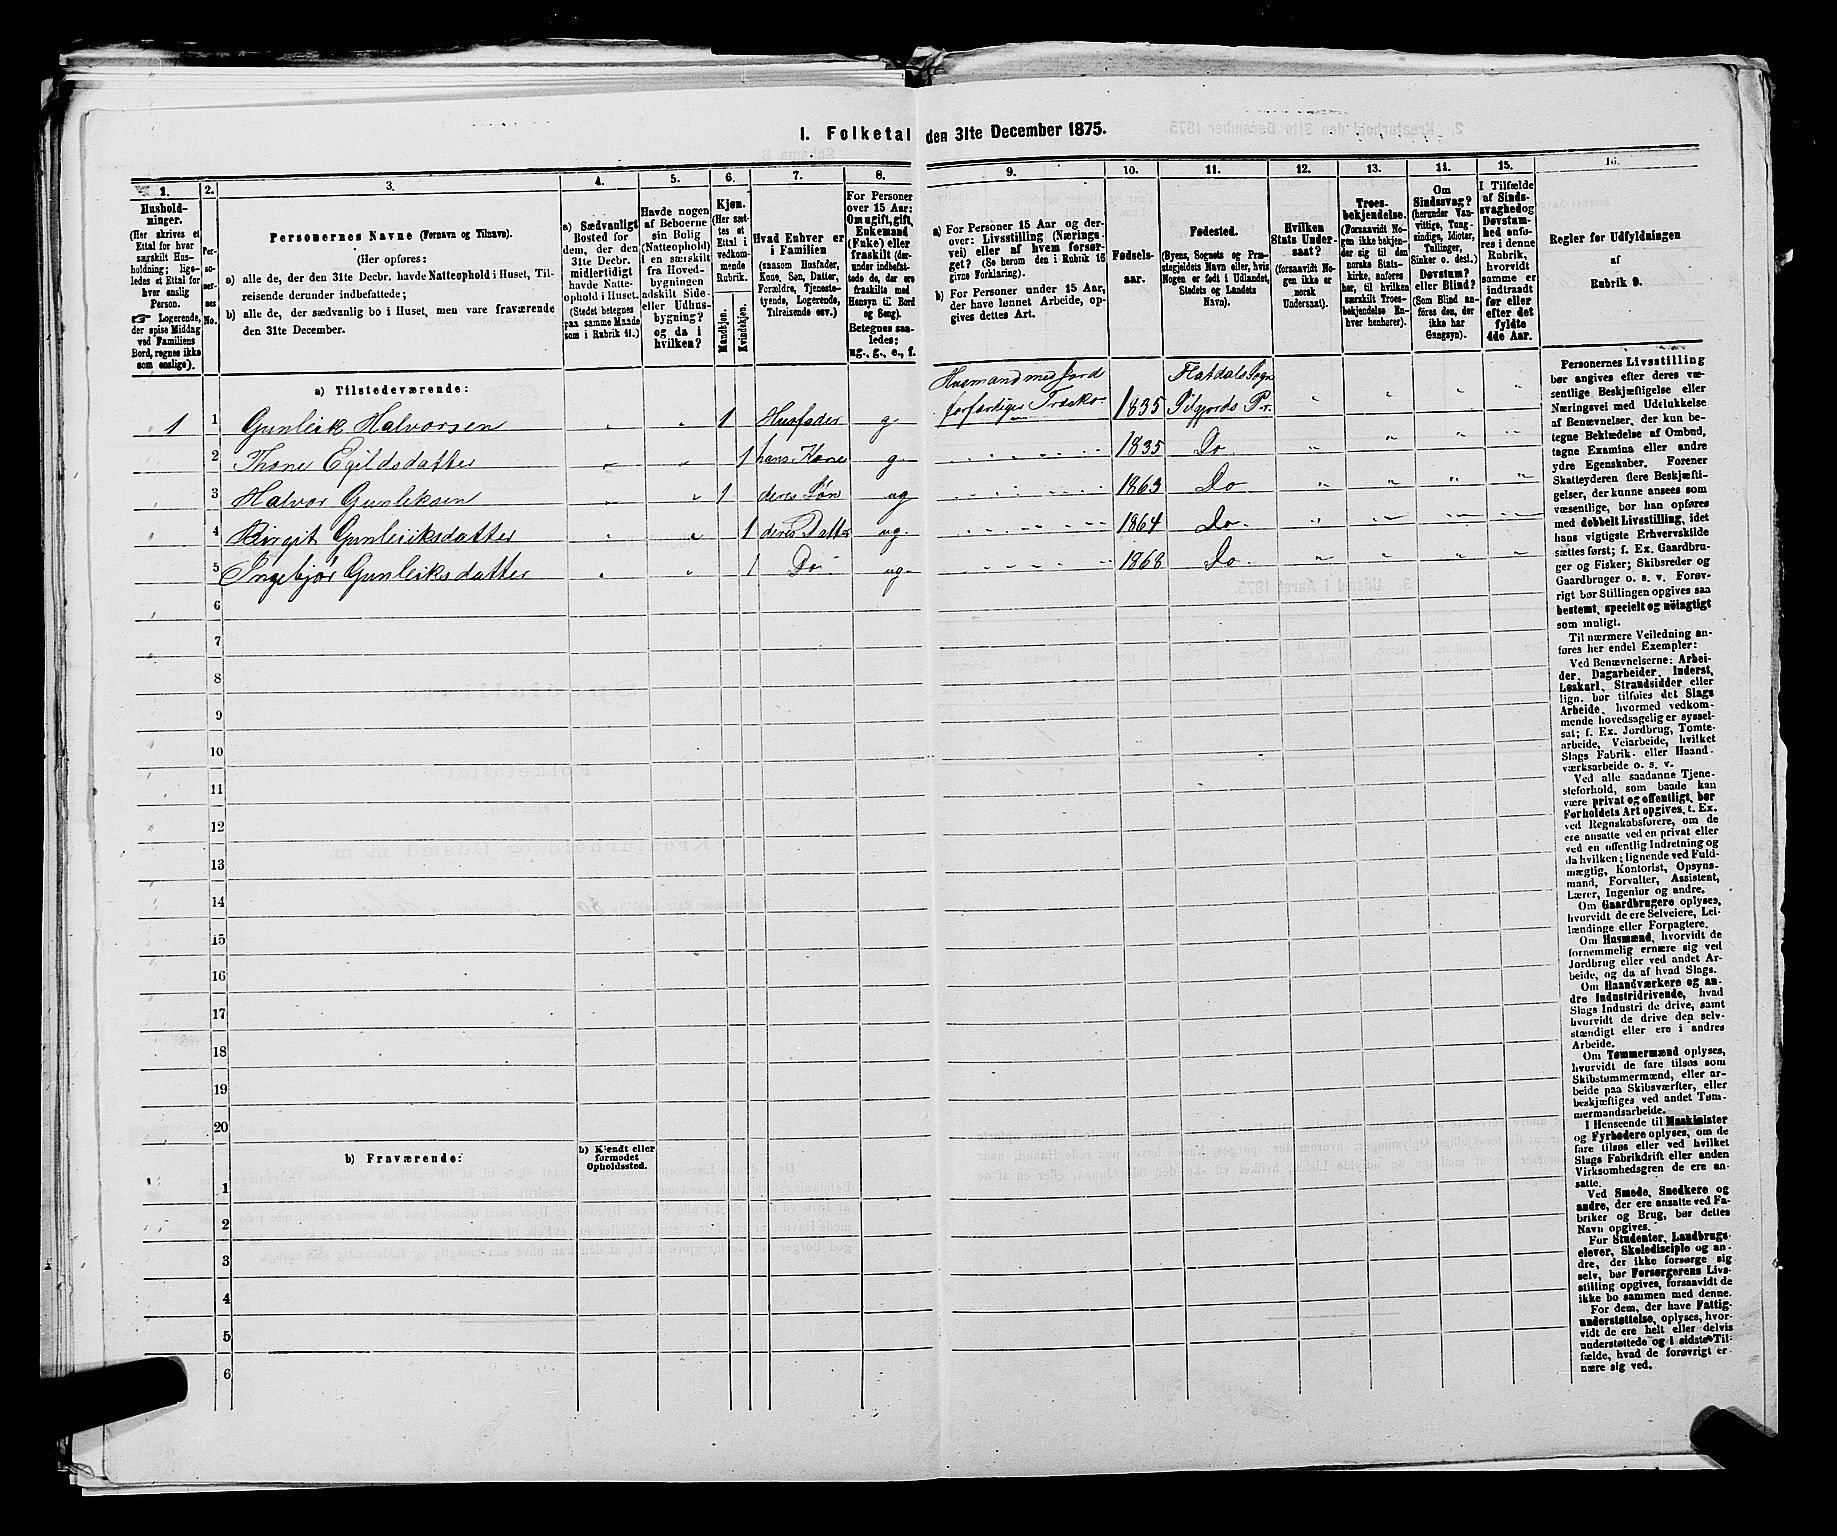 I. Folketal den 31te December 1875.
1. 2. 3. 4. 5. 6. 7. 8. 9. 10. 11. 12. 13. 14. 15. 16.
Hushold-
ninger.
(Her skrives et
Ettal for hver
særskilt Hus-
holdning; lige-
ledes et Ettal for
hver enslig
Person.
☞ Logerende,
der spise Middag
ved Familiens
Bord, regnes ikke
som enslige).
Per-
so-
ner-
nes
No.
Personernes Navne (Fornavn og Tilnavn).
(Her opføres:
a) alle de, der den 31te Decbr. havde Natteophold i Huset, Til-
reisende derunder indbefattede;
b) alle de, der sædvanlig bo i Huset, men vare fraværende
den 31te December.
a) Sædvanligt
Bosted for
dem, der den
31te Decbr.
midlertidigt
havde Natte-
ophold i Huset.
(Stedet betegnes
paa samme Maade
som i Rubrik 11.)
Havde nogen
af Beboerne
sin Bolig
(Natteophold)
i en særskilt
fra Hoved-
bygningen
adskilt Side-
eller Udhus-
bygning?
og da i
hvilken?
Kjøn.
(Her sæt-
tes et
Ettal i
vedkom-
mende
Rubrik.
Mandkjøn.
Kvindekjøn.
Hvad Enhver er
i Familien
(saasom Husfader,
Kone, Søn, Datter,
Forældre, Tjeneste-
tyende, Logerende,
Tilreisende osv.)
For Personer
over 15 Aar:
Om ugift, gift,
Enkemand
(Enke) eller
fraskilt (der-
under indbefat-
tede de, der ere
fraskilte med
Hensyn til Bord
og Seng).
Betegnes saa-
ledes:
ug., g., e., f.
a) For Personer 15 Aar og der-
over: Livsstilling (Nærings-
vei) eller af hvem forsør-
get? (Se herom den i Rubrik 16
givne Forklaring).
b) For Personer under 15 Aar,
der have lønnet Arbeide, op-
gives dettes Art.
Fødsels-
aar.
Fødested.
(Byens, Sognets og Præ-
stegjeldets Navn eller, hvis
Nogen er født i Udlandet,
Stedets og Landets
Navn).
Hvilken
Stats Under-
saat?
(forsaavidt No-
gen ikke er
norsk
Undersaat).
Troes-
bekjendelse.
(Forsaavidt No-
gen ikke bekjen-
der sig til den
norske Stats-
kirke, anføres
her, til hvilken
særskilt Troes-
bekjendelse En-
hver henhører).
Om
Sindssvag?
(herunder Van-
vittige, Tung-
sindige, Idioter,
Tullinger,
Sinker o. desl.)
Døvstum?
eller Blind?
(Som Blind an-
føres den, der
ikke har
Gangsyn).
I Tilfælde
af Sinds-
svaghed og
Døvstum-
hed anfø-
res i denne
Rubrik,
hvorvidt
samme er
indtraadt
før eller
efter det
fyldte
4de Aar.
Regler for Udfyldningen
af
Rubrik 9.
a) Tilstedeværende:
Husmand med Jord Flatdals Sogn
1 1 Gunleik Halvorsen " " 1 Husfader g. forfærdiger Træsko 1835 Siljords Pr. " " " "
2 Thone Egildsdatter " " 1 hans Kone g. 1835 Do " " " "
3 Halvor Gunleksen " " 1 deres Søn ug 1863 Do " " " "
4 Birgit Gunleiksdatter " " 1 deres Datter ug. 1864 Do. " " " "
5 Ingebjør Gunleiksdatter " " 1 Do ug. 1868 Do. " " " "
6
7
8
9
10
11
12
13
14
15
16
17
18
19
20
b) Fraværende: b) Kjendt eller
formodet
Opholdssted.
1
2
3
4
5
6
Personernes Livsstilling
bør angives efter deres væ-
sentlige Beskjæftigelse eller
Næringsvei med Udelukkelse
af Benævnelser, der kun be-
tegne Beklædelse af Ombud,
tagne Examina eller andre
ydre Egenskaber. Forener
Skatteyderen flere Beskjæfti-
gelser, der kunne ansees som
væsentlige, bør han opføres
med dobbelt Livsstilling, idet
hans vigtigste Erhvervskilde
sættes først; f. Ex. Gaardbru-
ger og Fisker; Skibsreder og
Gaardbruger o. s. v. Forøv-
rigt bør Stillingen opgives saa
bestemt, specielt og nöiagtigt
som muligt.
Til nærmere Veiledning an-
føres her endel Exempler:
Ved Benævnelserne: Arbei-
der, Dagarbeider, Inderst,
Løskarl, Strandsidder eller
lign. bør tilføies det Slags
Arbeide, hvormed vedkom-
mende hovedsagelig er syssel-
sat; f. Ex. Jordbrug, Tomte-
arbeide, Veiarbeide, hvilket
Slags Fabrik- eller Haand-
værksarbeide o. s. v.
Ved alle saadanne Tjene-
steforhold, som baade kan
være privat og offentligt, bør
Forholdets Art opgives, t. Ex.
ved Regnskabsførere, om de
ere ansatte ved en privat eller
ved en offentlig Indretning og
da hvilken; lignende ved Fuld-
mægtig, Kontorist, Opsyns-
mand, Forvalter, Assistent,
Lærer, Ingeniør og andre.
Om Gaardbrugere oplyses,
hvorvidt de ere Selveiere, Lei-
lændinge eller Forpagtere.
Om Husmænd, hvorvidt de
fornemmelig ernære sig ved
Jordbrug eller ved andet Ar-
beide, og da af hvad Slags.
Om Haandværkere og an-
dre Industridrivende, hvad
Slags Industri de drive, samt
hvorvidt de drive den selv-
stændigt eller ere i andres
Arbeide.
Om Tømmermænd oplyses,
hvorvidt de fare tilsøs som
Skibstømmermænd, eller ar-
beide paa Skibsværfter, eller
beskjæftiges ved andet Tøm-
mermandsarbeide.
I Henseende til Maskinister
og Fyrbødere oplyses, om de
fare tilsøs eller ved hvilket
Slags Fabrikdrift eller anden
Virksomhedsgren de ere an-
satte.
Ved Smede, Snedkere og
andre, der ere ansatte ved Fa-
briker og Brug, bør dettes
Navn opgives.
For Studenter, Landbrugs-
elever, Skoledisciple og an-
dre, der ikke forsørge sig
selv, bør Forsørgerens Livs-
stilling opgives, forsaavidt de
ikke bo sammen med denne.
For dem, der have Fattig-
understøttelse, oplyses, hvor-
vidt de ere helt eller delvis
understøttede og i sidste Til-
fælde, hvad de forøvrigt er-
nære sig ved.